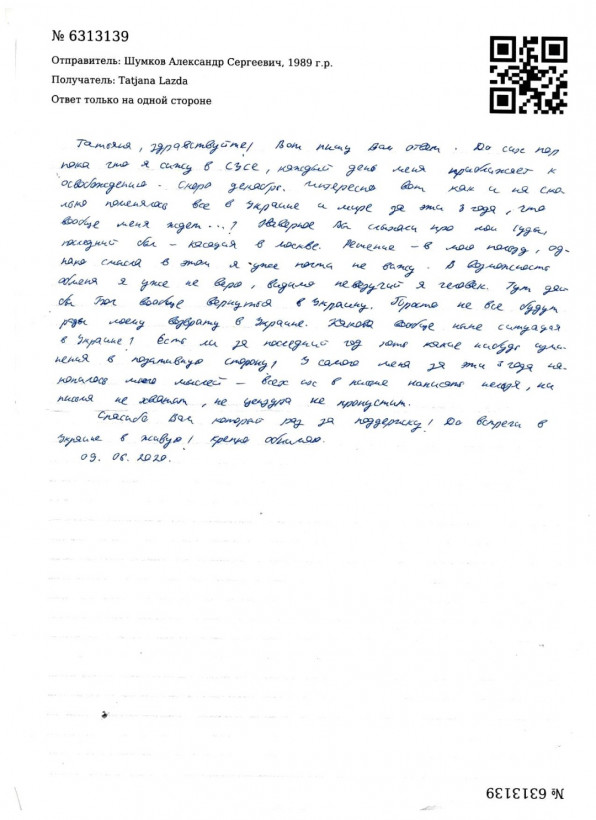 № 6313139
Отправитель: Шумков Александр Сергеевич, 1989 г.р.
Получатель: Tatjana Lazda
Ответ только на одной стороне
Татьяна, здравствуйте! Вот пишу Вам ответ. До сих пор
пока что я сижу в СУСе, каждый день меня приближает к
освобождению. Скоро декабрь. Интересно вот как и на ско-
лько поменялось все в Украине и мире за эти 3 года, что
вообще меня ждет...? Наверное Вы слышали про мои суды,
последний был – кассация в москве. Решение – в мою пользу, од-
нако смысла в этом я уже почти не вижу. В возможность
обмена я уже не верю, видимо невезучий я человек. Тут дай
бы Бог вообще вернуться в Украину. Просто не все будут
рады моему возврату в Украине. Какова вообще ныне ситуация
в Украине? Есть ли за последний год хоть какие нибудь изме-
нения в позитивную сторону? У самого меня за эти 3 года на-
копилось много мыслей – всех их в письме написать нельзя, ни
письма не хватит, ни цензура не пропустит.
Спасибо Вам который раз за поддержку! До встречи в
Украине в живую! Крепко обнимаю.
09. 06. 2020.
№ 6313139